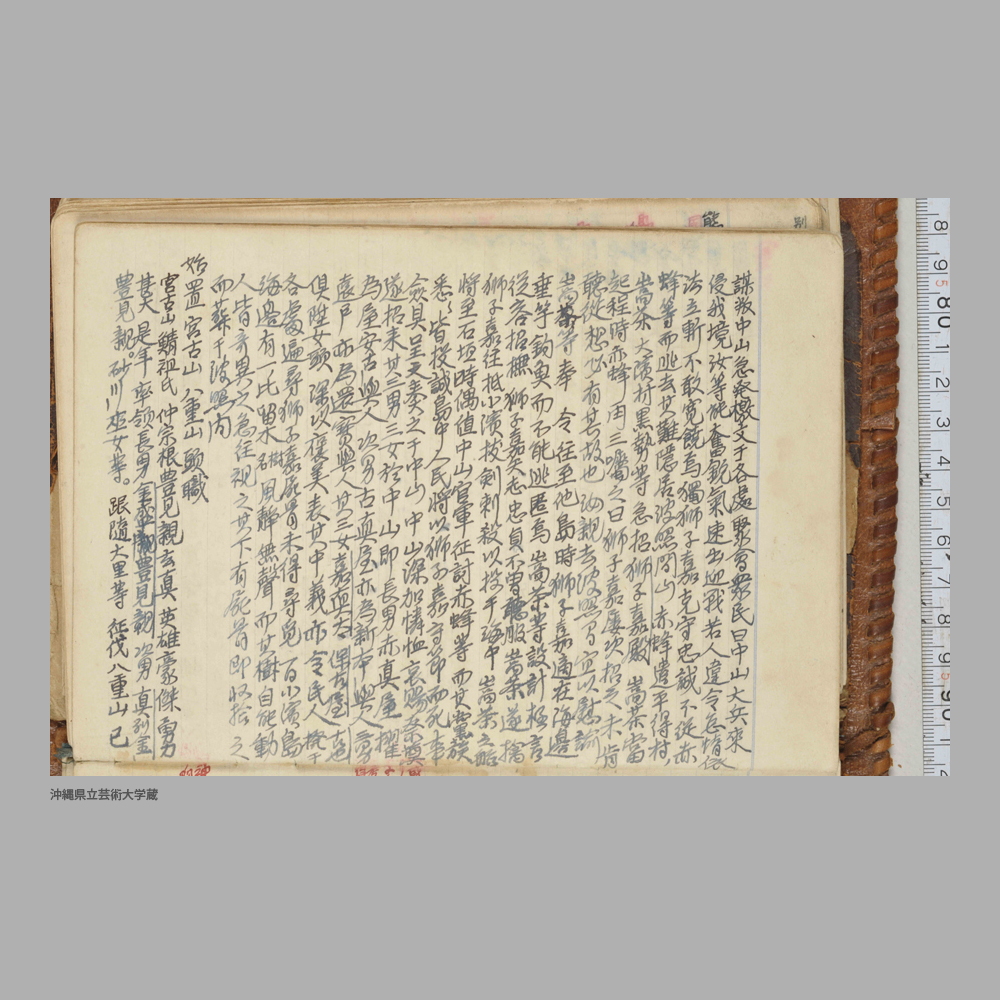 謀叛中山急發檄文于各處聚會衆民曰中山大兵來
侵我境汝等能奮鋭氣速出迎戰若人違令怠惰依
法立斬不敢寛饒焉獨獅子嘉克守忠誠不従赤
蜂等而逃去其難隠居波照間山赤蜂遣平得村
嵩茶大濱村黒勢等急招獅子嘉殿嵩茶當
起程時赤蜂再三嘱之曰獅子嘉屡次招之未肯
聴従想必有其故也汝親去波照間宜以慰諭
嵩茶等奉令往至他島時獅子嘉適在海邊
垂竿釣魚而不能逃匿焉嵩茶等設計極言
従容招撫獅子嘉矢志忠貞不曽聴服嵩茶遂擒
獅子嘉往抵小濱拔剣刺殺以投于海中嵩茶之船
将至石垣時偶値中山官軍征討赤蜂等而其黨類
悉皆投誠島中人民将以獅子嘉守節而死事
僉具呈文奏之于中山中山深加憐恤哀賜祭奠
遂招来其三男三女於中山即長男赤真屋擢
為屋安古與人次男古真屋亦為新本與人三男
遠戸亦為還寳與人其三女嘉
倶陞女頭深以褒美表其中義亦令民人
各處遍尋獅子嘉屍骨未得尋覓一日小濱島
海邉有一比留木樹風静無聲而其樹自能動
人皆奇異之急往視之其下有屍骨即收拾之
而葬于波照間
始置宮古山八重山頭職
宮古山鱗祖氏仲宗根豊見親玄真英雄豪傑勇力
其人是年率領長男金盛豊見親次男真列金
豊見親。砂川巫女等。跟隨大里等征伐八重山已
熊
別
沖縄県立芸術大学蔵